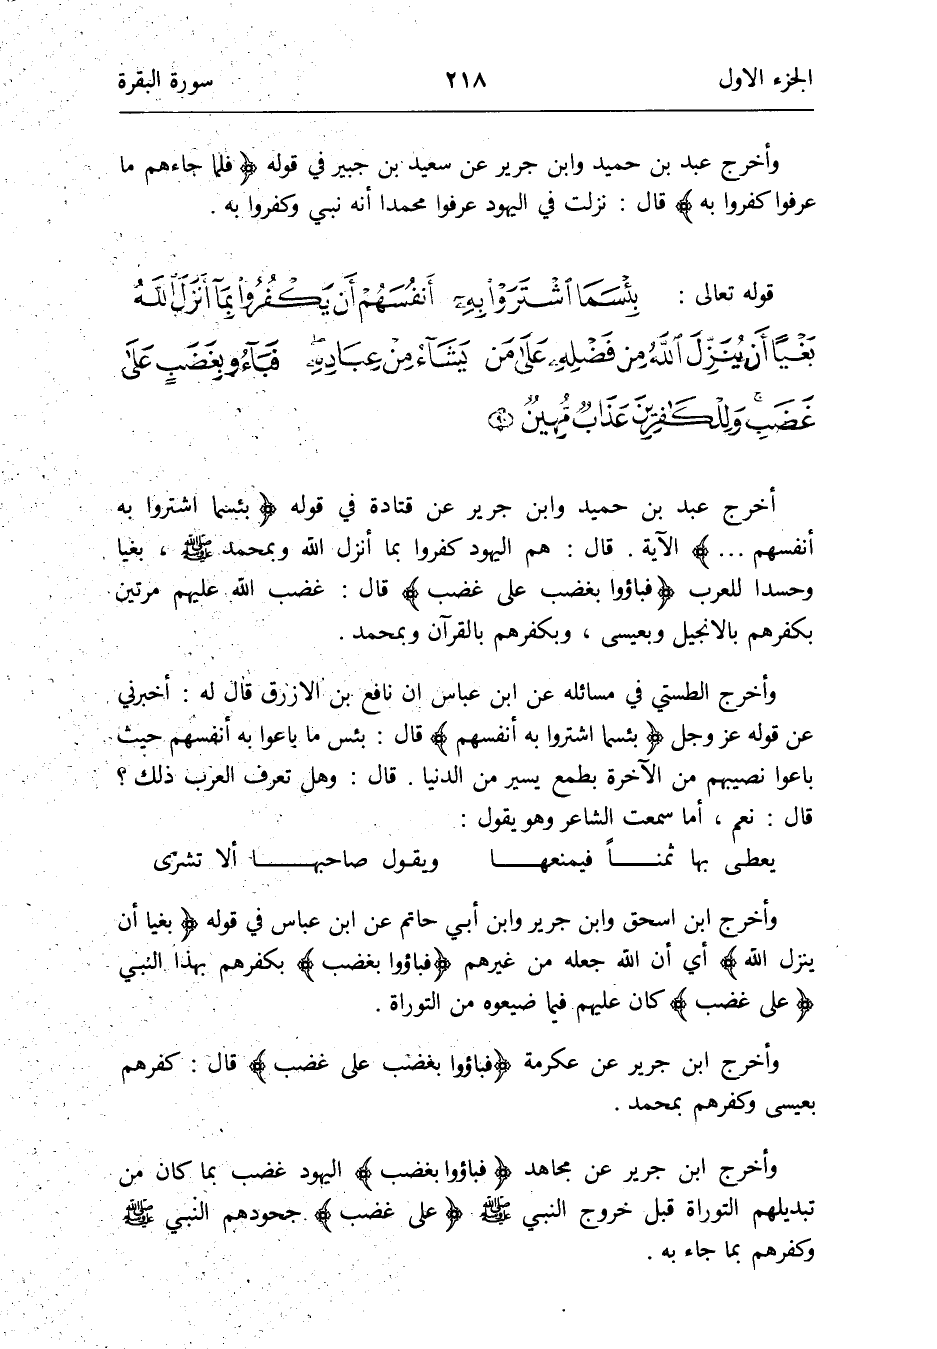 الجزء الاول ٢١٨ سورة البقرة
وأخرج عبد بن حميد وابن جرير عن سعيد بن جبير في قوله ﴿ فلما جاءهم ما
عرفوا كفروا به ﴾ قال : نزلت في اليهود عرفوا محمدا أنه نبي وكفروا به .
قوله تعالى : بِئْسَمَا ٱشْتَرَوْا۟ بِهِۦٓ أَنفُسَهُمْ أَن يَكْفُرُوا۟ بِمَآ أَنزَلَ ٱللَّهُ
بَغْيًا أَن يُنَزِّلَ ٱللَّهُ مِن فَضْلِهِۦ عَلَىٰ مَن يَشَآءُ مِنْ عِبَادِهِۦ ۖ فَبَآءُو بِغَضَبٍ عَلَىٰ
غَضَبٍ ۚ وَلِلْكَـٰفِرِينَ عَذَابٌ مُّهِينٌ ﴿٩٠﴾
أخرج عبد بن حميد وابن جرير عن قتادة في قوله ﴿ بئسما اشتروا به
أنفسهم ... ﴾ الآية . قال : هم اليهود كفروا بما أنزل الله وبمحمد ﷺ ، بغيا
وحسدا للعرب ﴿فباؤوا بغضب على غضب ﴾ قال : غضب الله عليهم مرتين
بكفرهم بالانجيل وبعيسى ، وبكفرهم بالقرآن وبمحمد .
وأخرج الطستي في مسائله عن ابن عباس ان نافع بن الازرق قال له : أخبرني
عن قوله عز وجل ﴿ بئسما اشتروا به أنفسهم ﴾ قال : بئس ما باعوا به أنفسهم حيث
باعوا نصيبهم من الآخرة بطمع يسير من الدنيا . قال : وهل تعرف العرب ذلك ؟
قال : نعم ، أما سمعت الشاعر وهو يقول :
يعطى بها ثمناً فيمنعها ويقول صاحبها ألا تشرى
وأخرج ابن اسحق وابن جرير وابن أبي حاتم عن ابن عباس في قوله ﴿ بغيا أن
ينزل الله ﴾ أي أن الله جعله من غيرهم ﴿فباؤوا بغضب ﴾ بكفرهم بهذا النبي
﴿ على غضب ﴾ كان عليهم فيما ضيعوه من التوراة .
وأخرج ابن جرير عن عكرمة ﴿فباؤوا بغضب على غضب ﴾ قال : كفرهم
بعيسى وكفرهم بمحمد .
وأخرج ابن جرير عن مجاهد ﴿ فباؤوا بغضب ﴾ اليهود غضب بما كان من
تبديلهم التوراة قبل خروج النبي ﷺ ﴿ على غضب ﴾ جحودهم النبي ﷺ
وكفرهم بما جاء به .